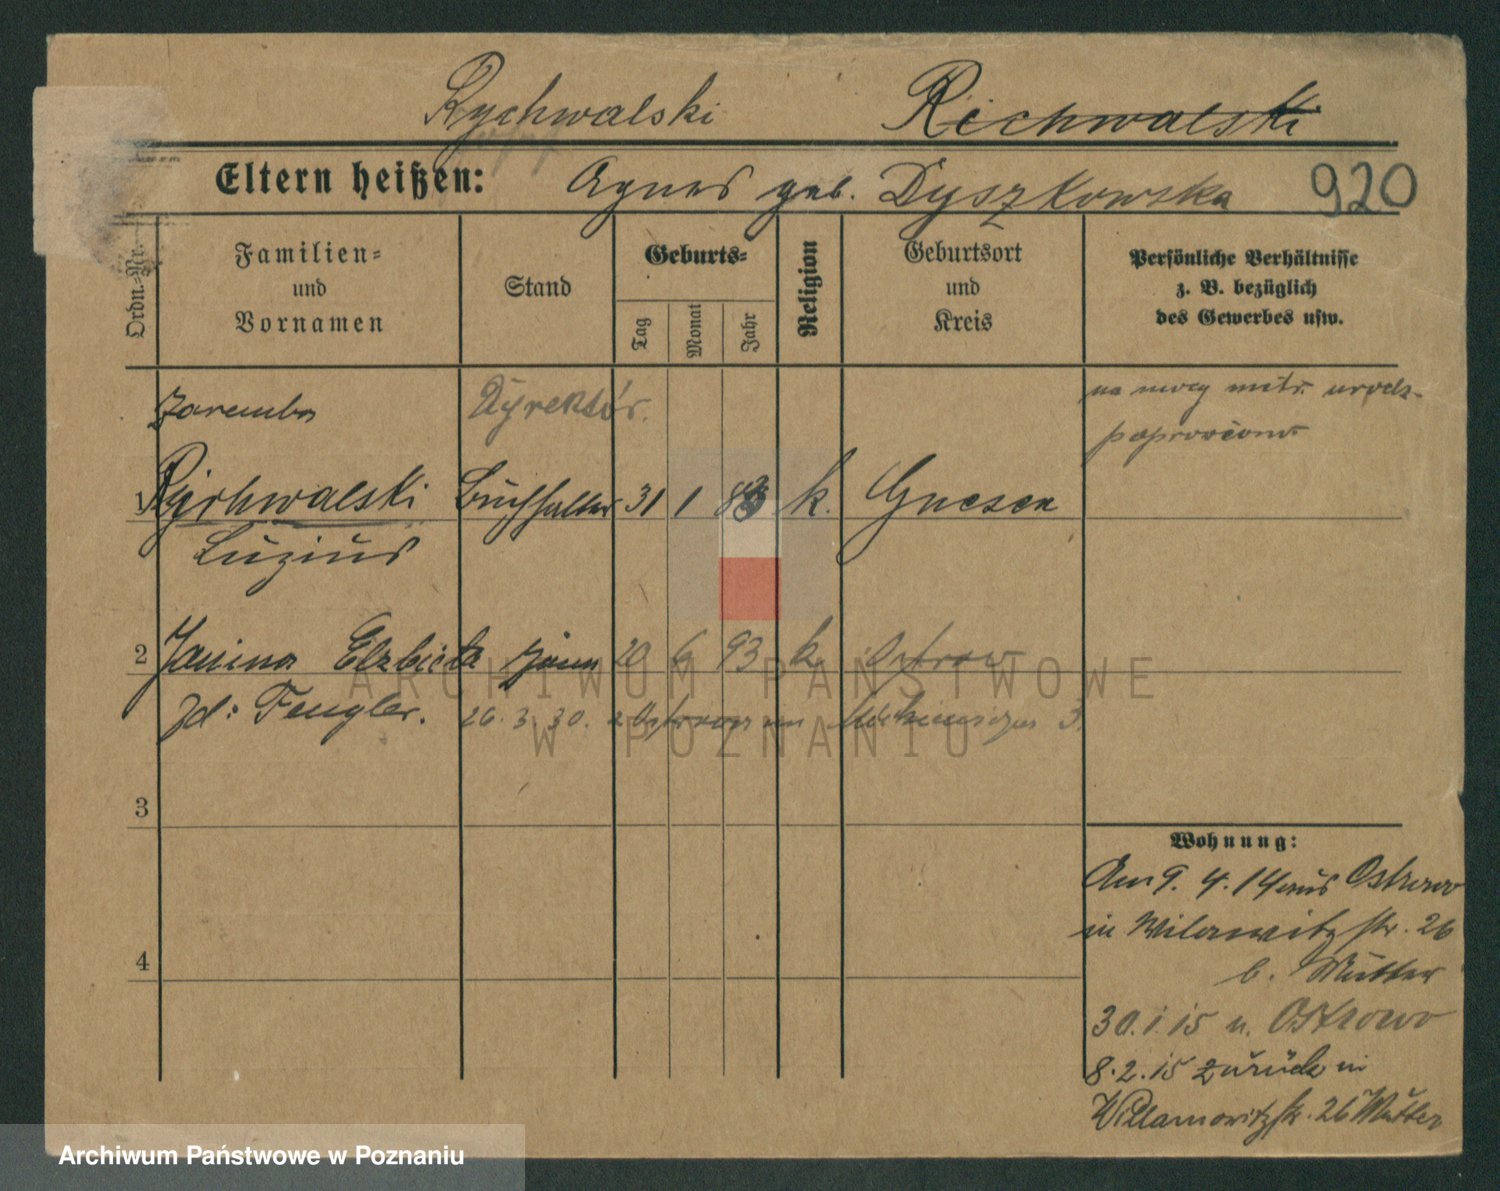 Rychwalski Richwalski
Eltern heißen: Agnes geb. Dyszkowska 920
Ordn.-Nr.
Familien-
und
Vornamen
Stand
Geburts-
Tag
Monat
Jahr
Religion
Geburtsort
und
Kreis
Persönliche Verhältnisse
z. B. bezüglich
des Gewerbes usw.
Zaremba Dyrektór. na mocy metr. urodz.
poprawiono
1 Rychwalski Buchhalter 31 1 83 k. Gnesen
Luzius
2 Janina Elżbieta żona 20 6 93 k Ostrow
zd: Fengler. 26. 3. 30. 3.
3
4
Wohnung:
Am 9. 4. 14 aus Ostrowo
in Wilamowitzstr. 26
b. Mutter
30.1.15 n. Ostrowo
8.2.15 zurück in
Willamowitzstr. 26 Mutter
ARCHIWUM PAŃSTWOWE
W POZNANIU
Archiwum Państwowe w Poznaniu